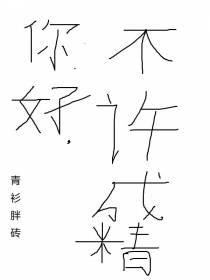 你好
不许成精
青衫胖砖